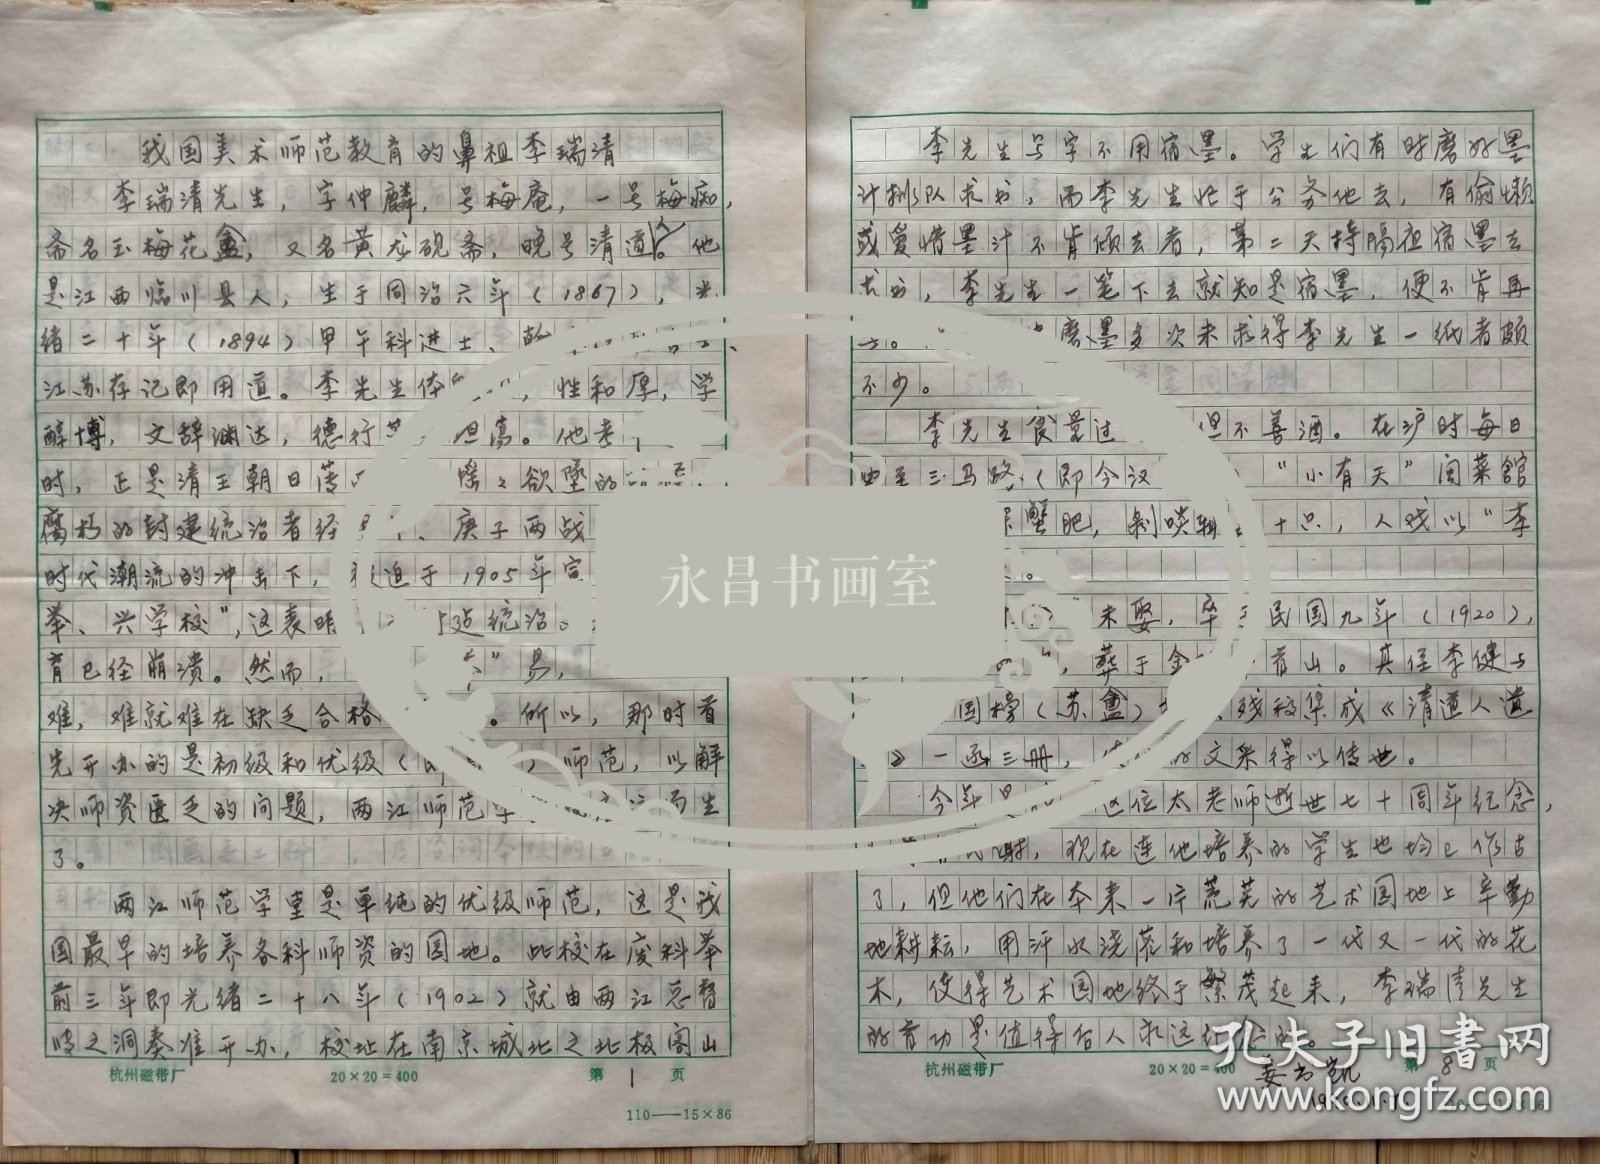 我国美术师范教育的鼻祖李瑞清
李瑞清先生，字仲麟，号梅庵，一号梅痴，
斋名玉梅花盦，又名黄龙砚斋，晚号清道人。他
是江西临川县人，生于同治六年（1867），光
绪二十年（1894）甲午科进士、翰
江苏存记即用道。李先生体 性和厚，学
醇博，文辞渊达，德行 高。他考
时，正是清王朝日薄 摇々欲墜的
腐朽的封建统治者经 、庚子两战
时代潮流的冲击下，被迫于1905年宣
举、兴学校”，这表明 建统治
育已经崩溃。然而， 易，
难，难就难在缺乏合格 。所以，那时首
先开办的是初级和优级（ ）师范，以解
决师资匮乏的问题，两江师范学 而生
了。
两江师范学堂是单纯的优级师范，这是我
国最早的培养各科师资的园地。此校在废科举
前三年即光绪二十八年（1902）就由两江总督
张之洞奏准开办，校址在南京城北之北极阁山
杭州磁带厂 20×20=400 第1页
110——15×86
李先生写字不用宿墨。学生们有时磨好墨
汁排队求书，而李先生忙于公务他去，有偷懒
或爱惜墨汁不肯倾去者，第二天持隔夜宿墨去
求书，李先生一笔下去就知是宿墨，便不肯再
写。 磨墨多次未求得李先生一纸者颇
不少。
李先生食量过 但不善酒。在沪时每日
必至三马路（即今汉 “小有天”闽菜馆
蟹肥，剥啖辄 十只，人戏以“李
。
未娶，卒于民国九年（1920），
，葬于金 首山。其侄李健与
国榜（苏盦） 残稿集成《清道人遗
》一函三册，使 的文采得以传世。
今年是 这位太老师逝世七十周年纪念，
，现在连他培养的学生也均已作古
了，但他们在本来一片荒芜的艺术园地上辛勤
地耕耘，用汗水浇灌和培养了一代又一代的花
木，使得艺术园地终于繁茂起来，李瑞清先生
的首功是值得后人永远纪念的。
杭州磁带厂 20×20=400 姜书凯 第8页
永昌书画室
孔夫子旧书网
www.kongfz.com